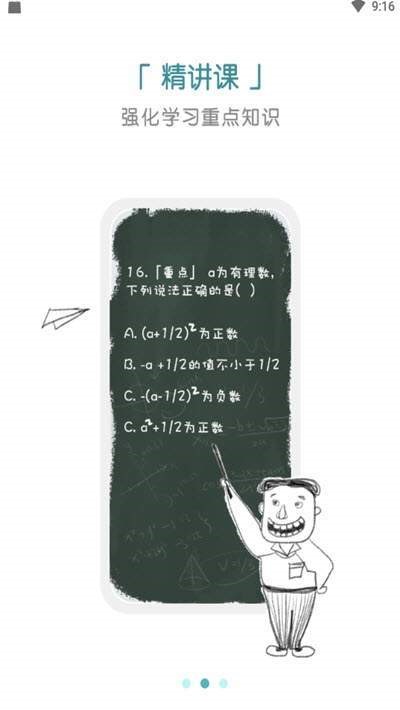 9:16
「 精讲课 」
强化学习重点知识
16.「重点」 a为有理数,
下列说法正确的是( )
A. (a+1/2)²为正数
B. -a +1/2的值不小于1/2
C. -(a-1/2)²为负数
C. a²+1/2为正数